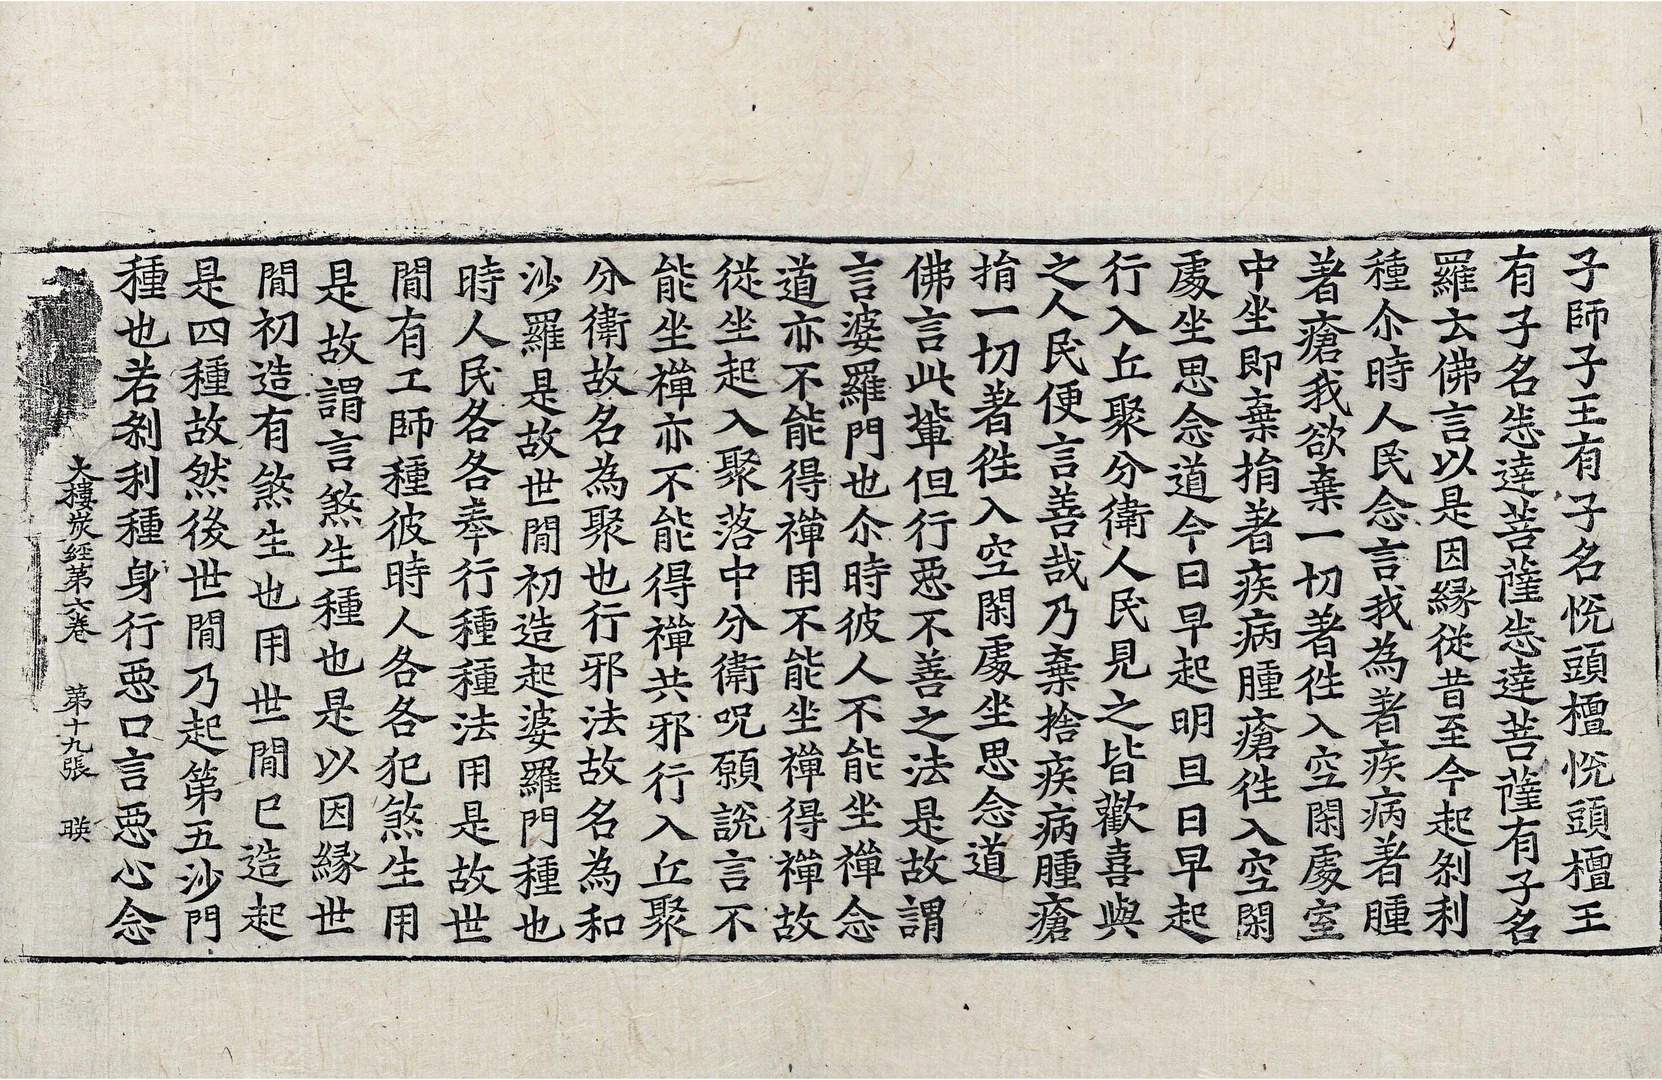 子師子王有子名恱頭檀恱頭檀王
有子名悉達菩薩悉達菩薩有子名
羅云佛言以是因緣從昔至今起刹利
種尒時人民念言我為著疾病著腫
著瘡我欲棄一切著徃入空閑處室
中坐即棄捐著疾病腫瘡徃入空閑
處坐思念道今日早起明旦日早起
行入丘聚分衛人民見之皆歡喜與
之人民便言善哉乃棄捨疾病腫瘡
捐一切著徃入空閑處坐思念道
佛言此輩但行惡不善之法是故謂
言婆羅門也尒時彼人不能坐禪念
道亦不能得禪用不能坐禪得禪故
從坐起入聚落中分衛呪願說言不
能坐禪亦不能得禪共邪行入丘聚
分衛故名為聚也行邪法故名為和
沙羅是故世閒初造起婆羅門種也
時人民各各奉行種種法用是故世
閒有工師種彼時人各各犯煞生用
是故謂言煞生種也是以因緣世
閒初造有煞生也用世閒巳造起
是四種故然後世閒乃起第五沙門
種也若剎利種身行惡口言惡心念
大樓炭經第六卷　第十九張　䀹